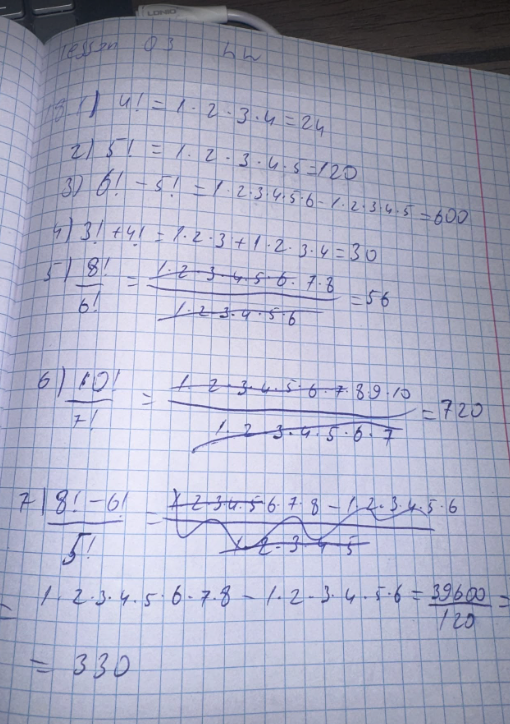 lesson 03 hw
1) 4! = 1 · 2 · 3 · 4 = 24
2) 5! = 1 · 2 · 3 · 4 · 5 = 120
3) 6! - 5! = 1 · 2 · 3 4 · 5 · 6 - 1 · 2 · 3 · 4 · 5 = 600
4) 3! + 4! = 1 · 2 · 3 + 1 · 2 · 3 · 4 = 30
5) 8! / 6! = 1 · 2 · 3 · 4 · 5 · 6 · 7 · 8 / 1 · 2 · 3 · 4 · 5 · 6 = 56
6) 10! / 7! = 1 · 2 · 3 · 4 · 5 · 6 · 7 · 8 · 9 · 10 / 1 · 2 · 3 · 4 · 5 · 6 · 7 = 720
7) 8! - 6! / 5! = 1 2 3 4 5 6 · 7 · 8 - 1 · 2 · 3 · 4 · 5 · 6 / 1 · 2 · 3 · 4 · 5
= 1 · 2 · 3 · 4 · 5 · 6 · 7 · 8 - 1 · 2 · 3 · 4 · 5 · 6 = 39600 / 120 =
= 330